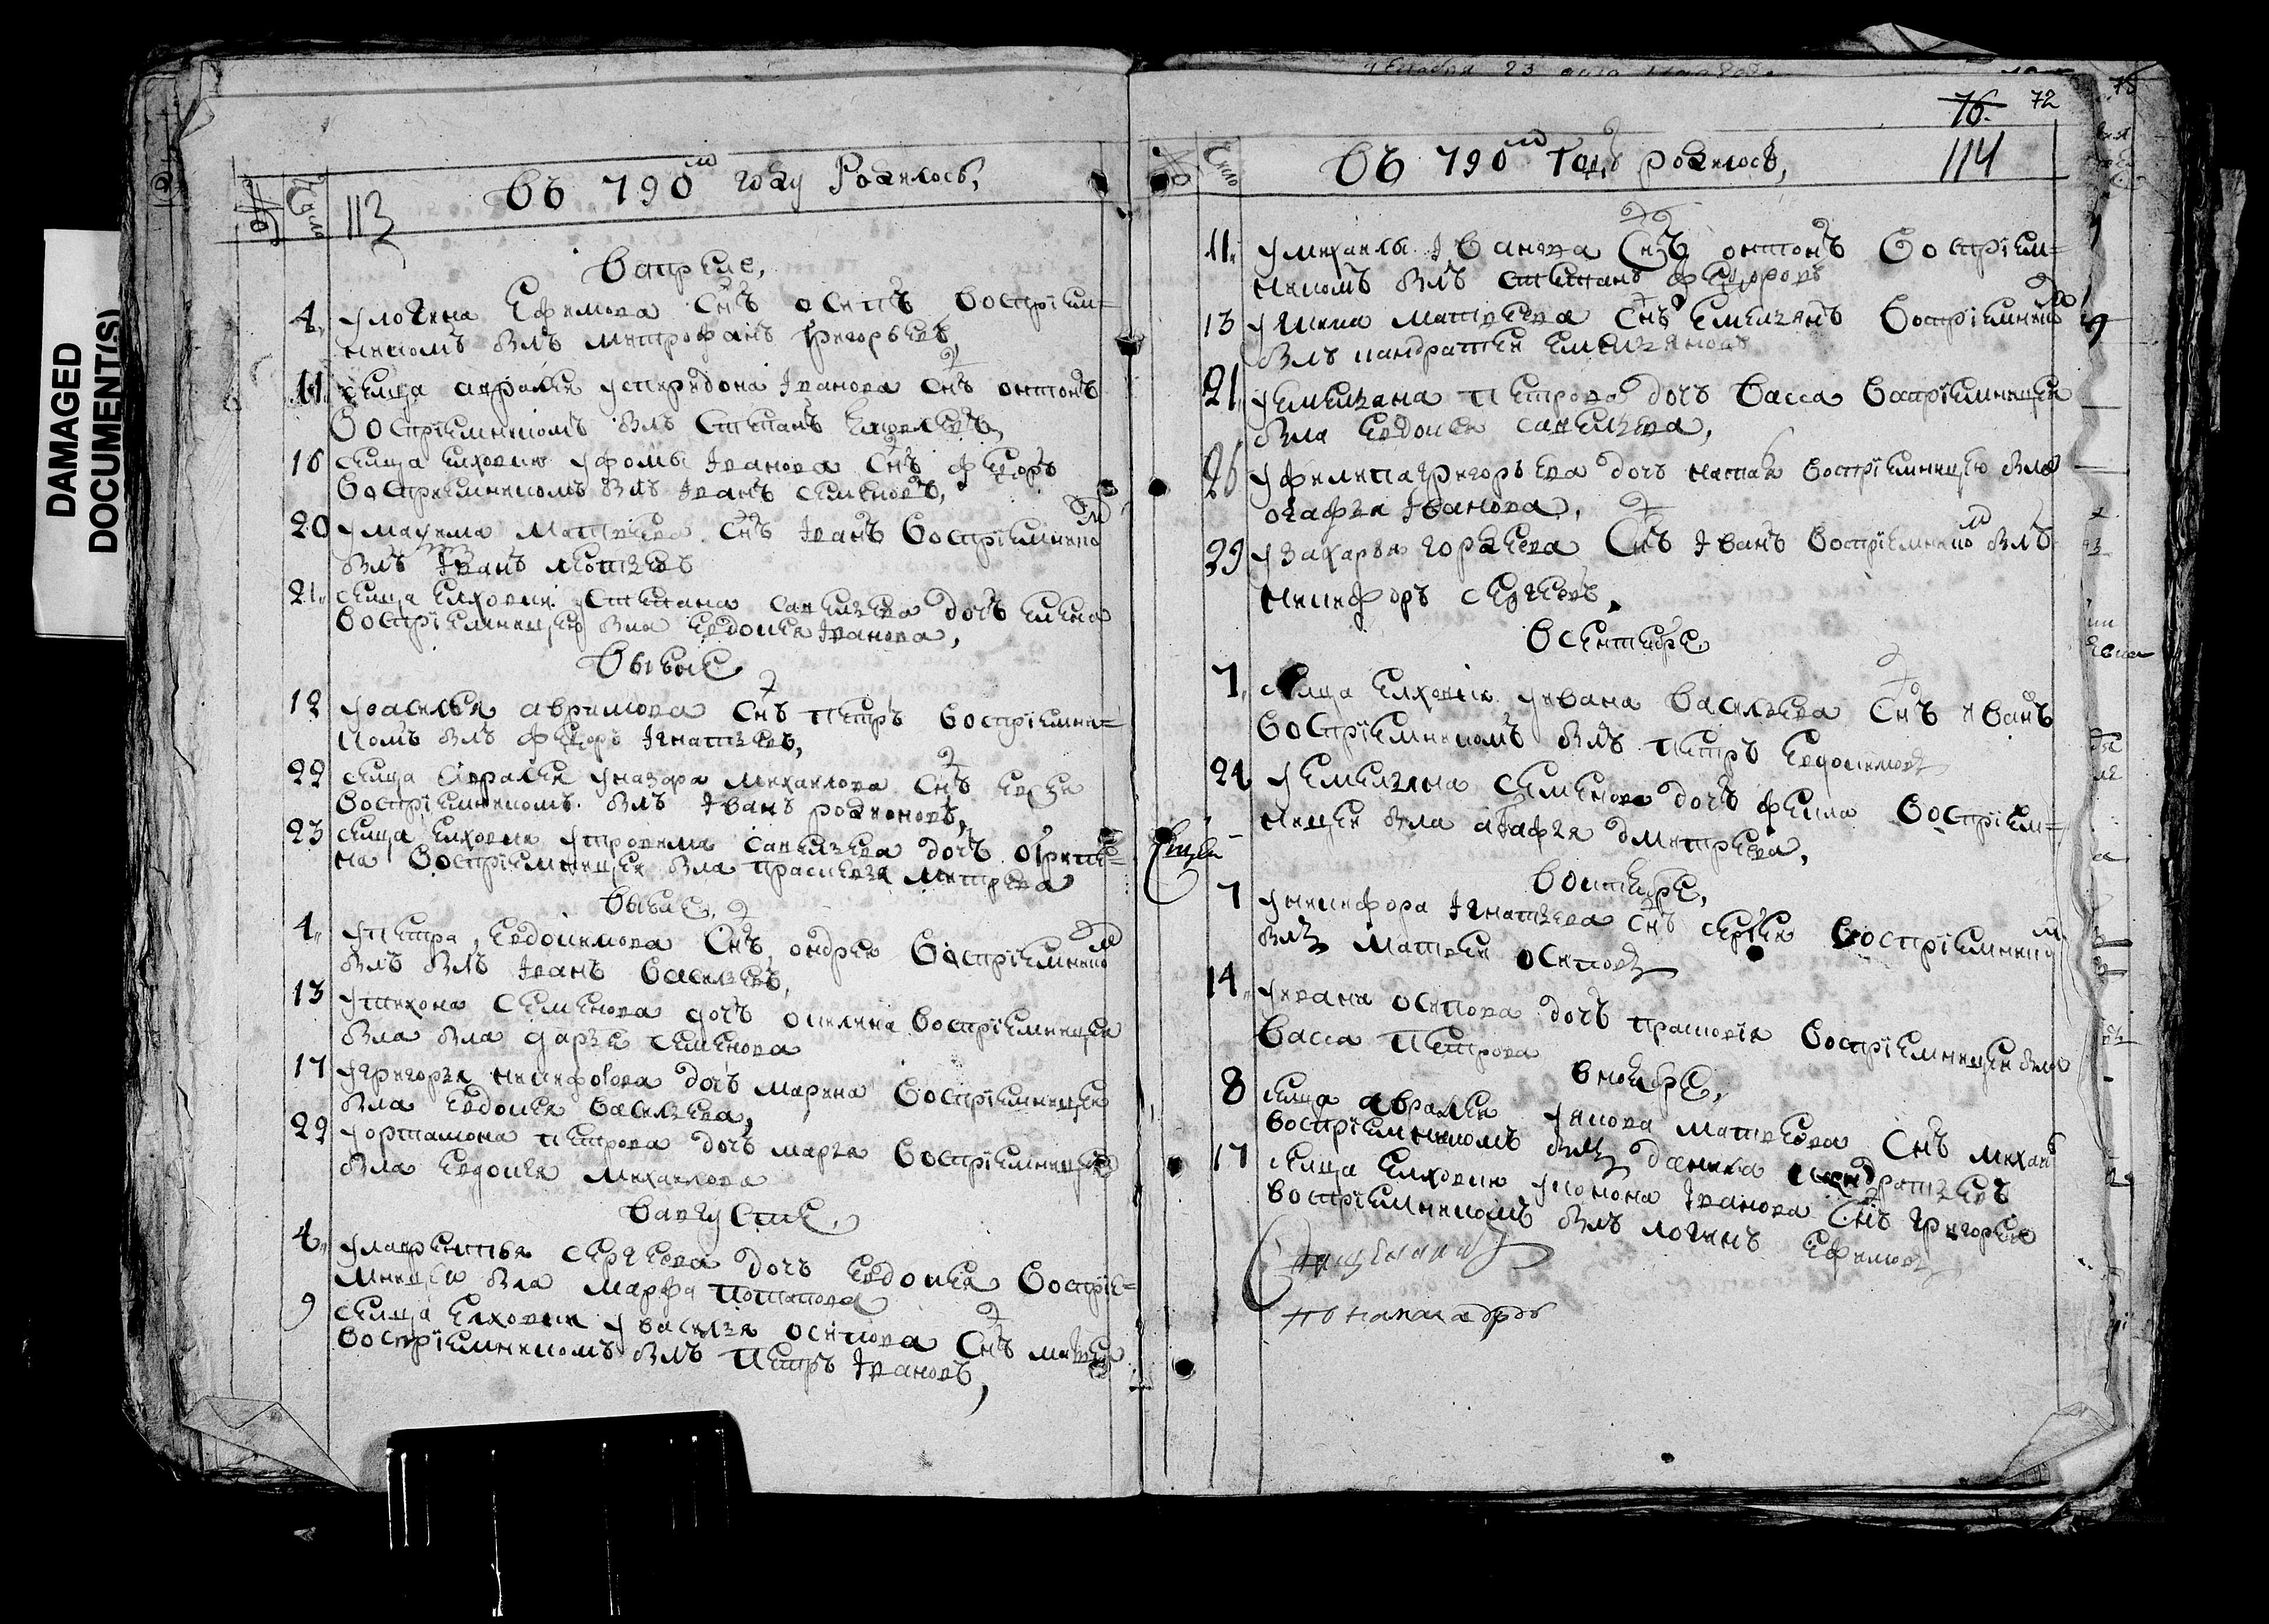 DAMAGED
DOCUMENT(S)
№
Число
113
въ 790м году Родилось,
вапреле,
4. улогина Ефимова снъ осипъ восприем=
никомъ былъ митрофанъ григорьевъ,
11. селца авралеи успиридона Iванова снъ онтонъ
восприемникомъ былъ степанъ
16 селца елховки уфомы Iванова снъ федоръ
восприемникомъ былъ Iванъ семеновъ,
20 умаѯима матвеева снъ Iванъ восприемнико м
былъ Iванъ
21. селца елховки устепана савельева дочъ елена
восприемницею была евдокея Iванова,
12 увасилья авримова снъ петръ восприемни=
комъ былъ федоръ Iгнатьевъ,
22 селца авралеи уназара михаилова снъ
восприемникомъ былъ Iванъ родионовъ,
23 селца елховки утрофима савельева дочъ огрипе=
на восприемницеи была прасковья митрева
1. упетра евдокимова снъ ондреи восприемнико м
былъ былъ Iванъ васильевъ,
13 утихона семенова дочъ окилина восприемницеи
была была дарье семенова
17 угригорья никифорова дочъ марина восприемницеи
была евдокея васильева,
29 уортамона петрова дочъ марья восприемницеи
была евдокея михаилова
вавгусте,
4. улаврентья сергеева дочъ евдокея восприе=
мницеи была марфа потапова
9 селца елховки увасилья осипова снъ матвеи
восприемникомъ былъ петръ Iвановъ,
76. 72
№
Число
въ 790м годъ родилось,
114
11. умихаилы Iванова снъ онтонъ восприем=
никомъ былъ степанъ федоровъ
13 уякима матвеева снъ емельянъ восприемнико м
былъ кандратеи емельяновъ
21, уемельяна петрова дочъ васса восприемницеи
была евдокея савельева,
26 уфилипа григорьева дочъ наталя восприемницею была
огафья Iванова,
29 узахарья гордеева снъ Iванъ восприемнико м былъ
никифоръ сергеевъ,
всентебре
7, селца елховки уивана васильева снъ иванъ
восприемникомъ былъ петръ евдокимовъ
24 уемельяна семенова дочъ фекла восприем=
ницеи была агафья дмитреева,
воктебре,
7 уникифора Iгнатьева снъ сергеи восприемнико м
былъ матвеи осиповъ
14, уивана осипова дочъ праковя восприемницеи была
васса петрова
вноебре,
8 селца авралеи уякова матвеева снъ михаи
восприемникомъ былъ данила кандратьевъ
17 селца елховки уконона Iванова снъ григореи
восприемникомъ былъ логинъ ефимовъ